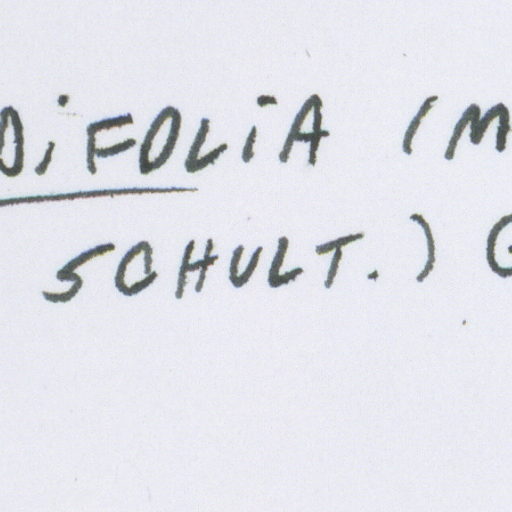 DiFOLiA (M
SCHULT.) G